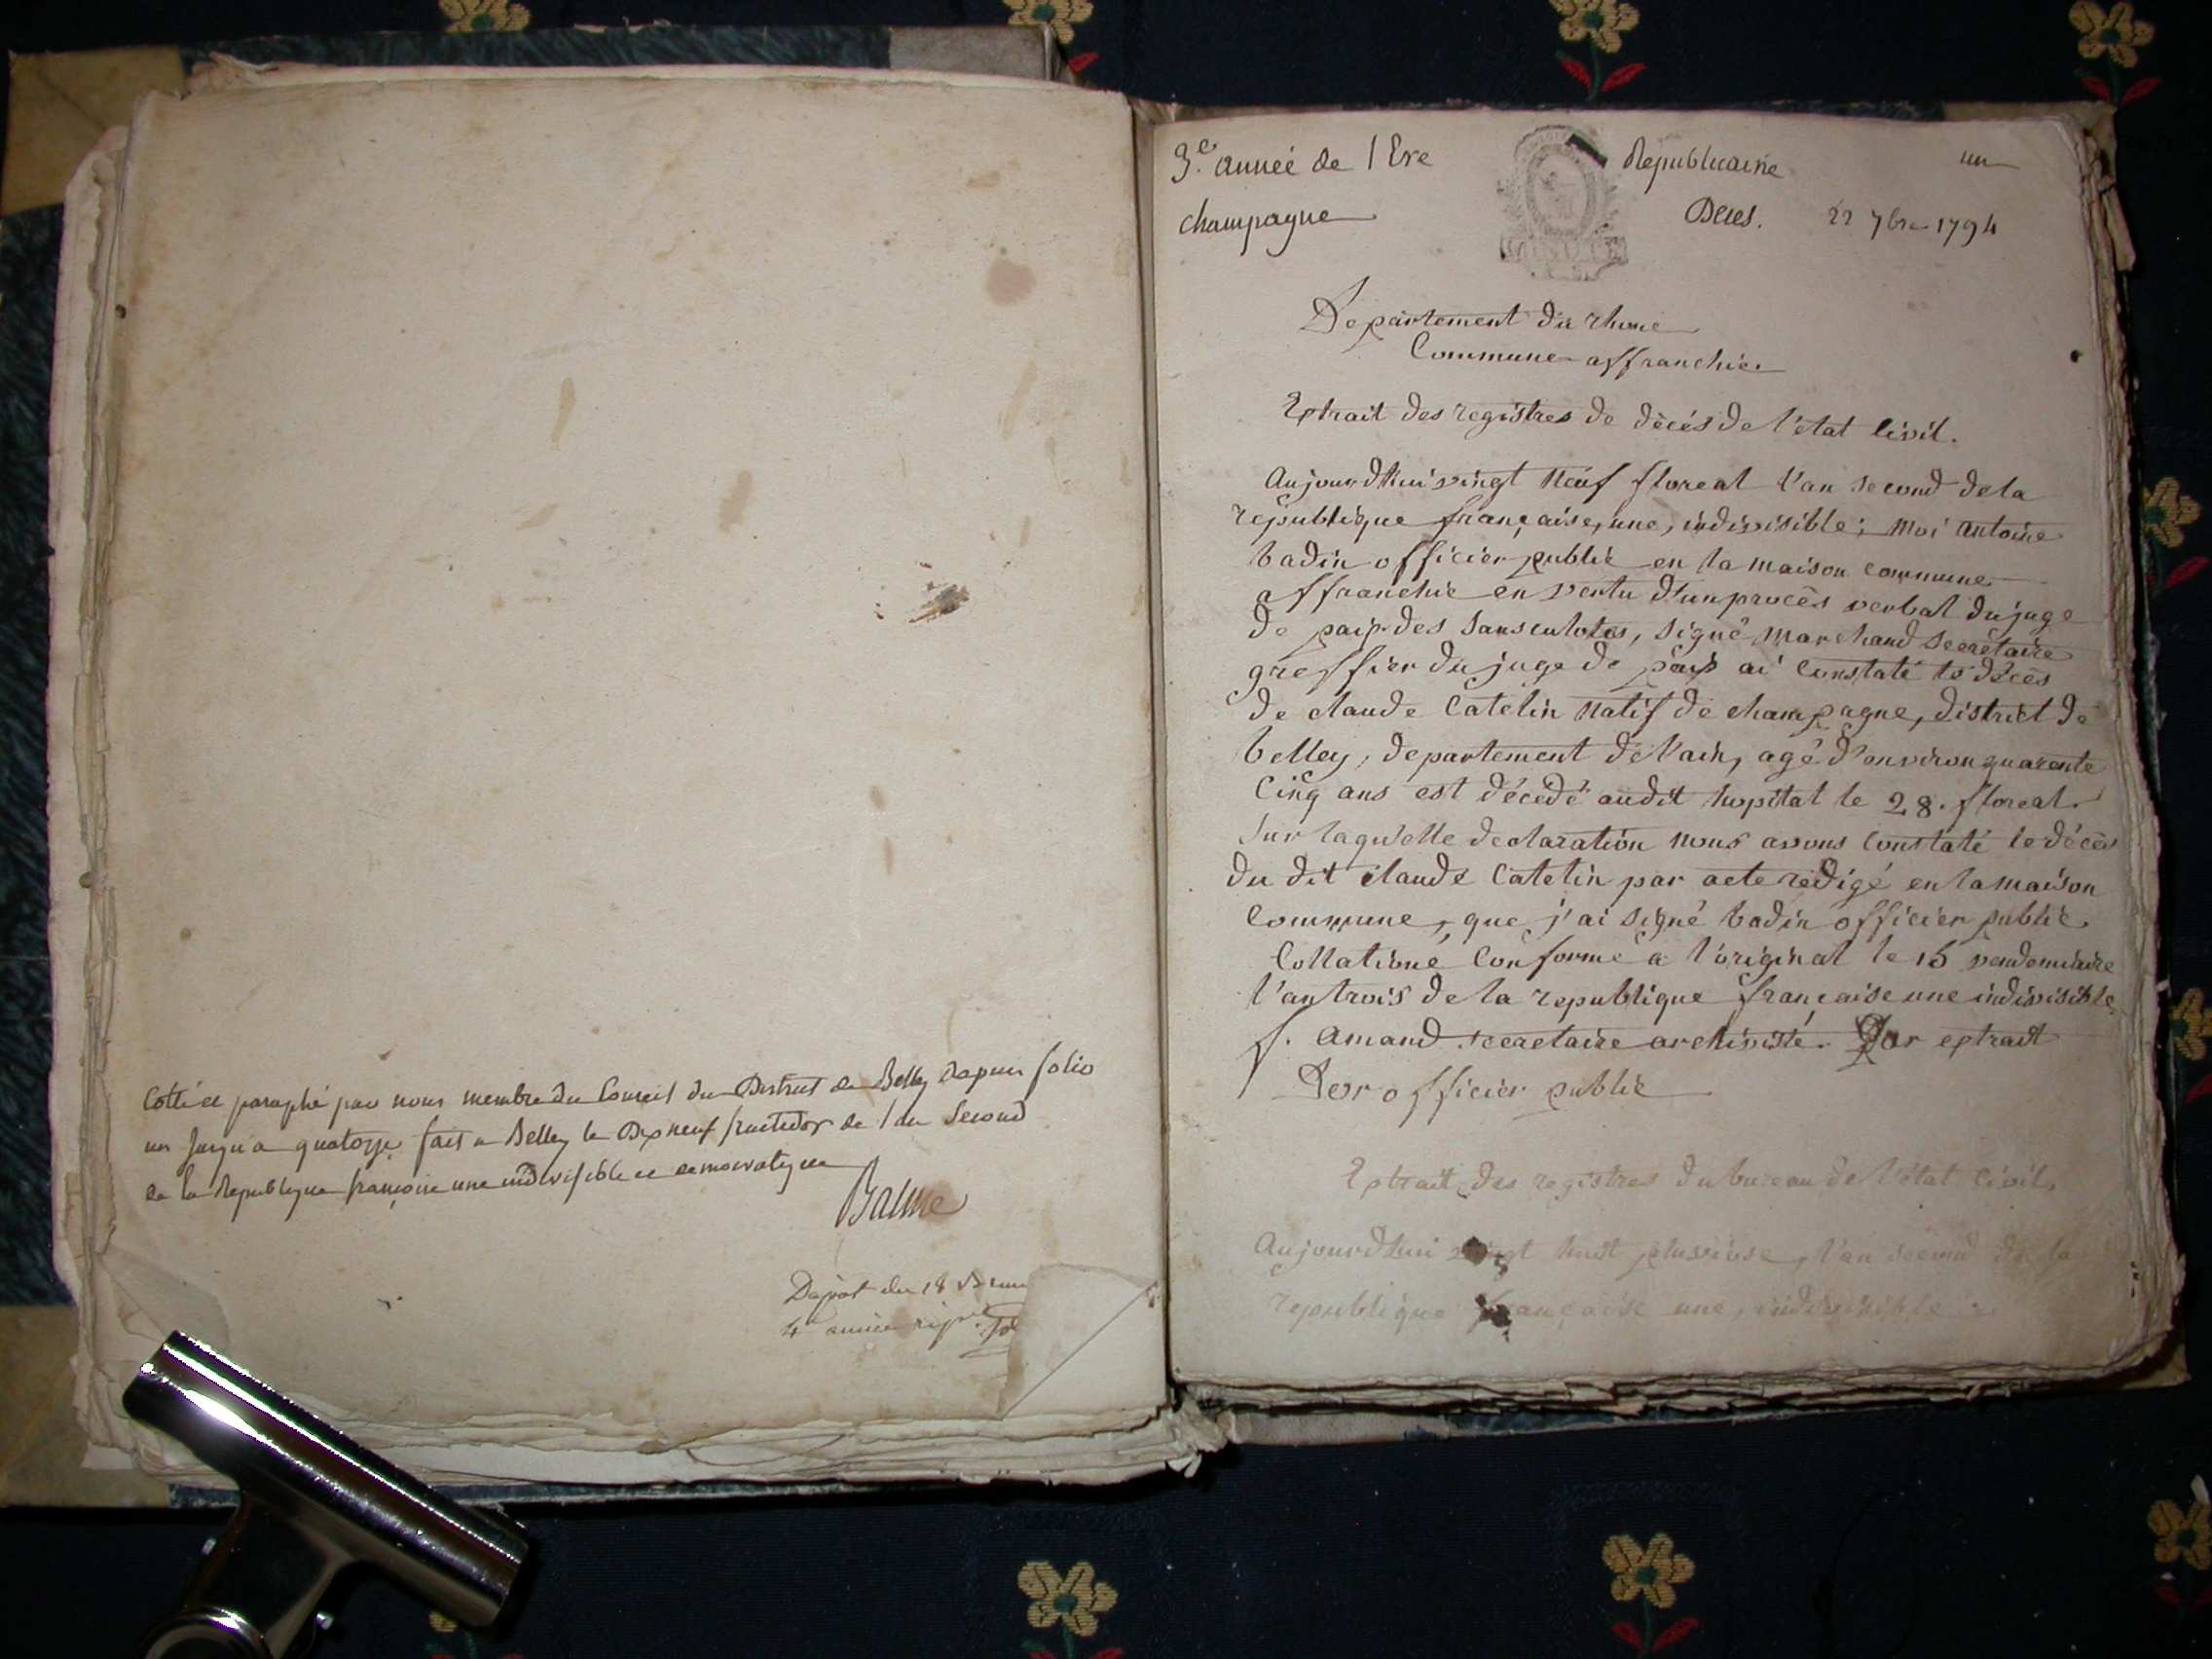 Cotté et paraphé par nous membre du Conseil du District de Belley depuis folio
un jusqu'a quatorze fait a Belley le Dix neuf fructidor de l'an Second
de la Republique françoise une indivisible et democratique
Balme
Depot du 18
4e année
3.e année de l Ere Republicaine un
champagne Deces. 22 7bre 1794
Departement du rhone
Commune affranchie.
Extrait des registres de décés de l'état Civil.
aujourdhui vingt neuf floreal l'an second de la
republique française, une, indivisible; moi antoine
badin officier public en la maison commune
affranchie en vertu d'un procès verbal du juge
de paix des sansculotes, signé marchand secrétaire
greffier du juge de paix ai constaté le décès
de claude Catelin natif de champagne, district de
belley, departement de l'ain, agé d'environ quarente
Cinq ans est décedé audit hopital le 28. floreal.
Sur laquelle declaration nous avons Constaté le décès
du dit claude Catelin par acte redigé en la maison
Commune, que j'ai signé badin officier public.
Collationé Conforme a l'original le 15 vendemiaire
l'an trois de la republique française une indivisible
f. amand secretaire archiviste. Par extrait
officier public
Extrait des registres du bureau de l'état Civil.
Aujourdhui vingt huit pluviose, l'an second de la
republique française une, indivisible